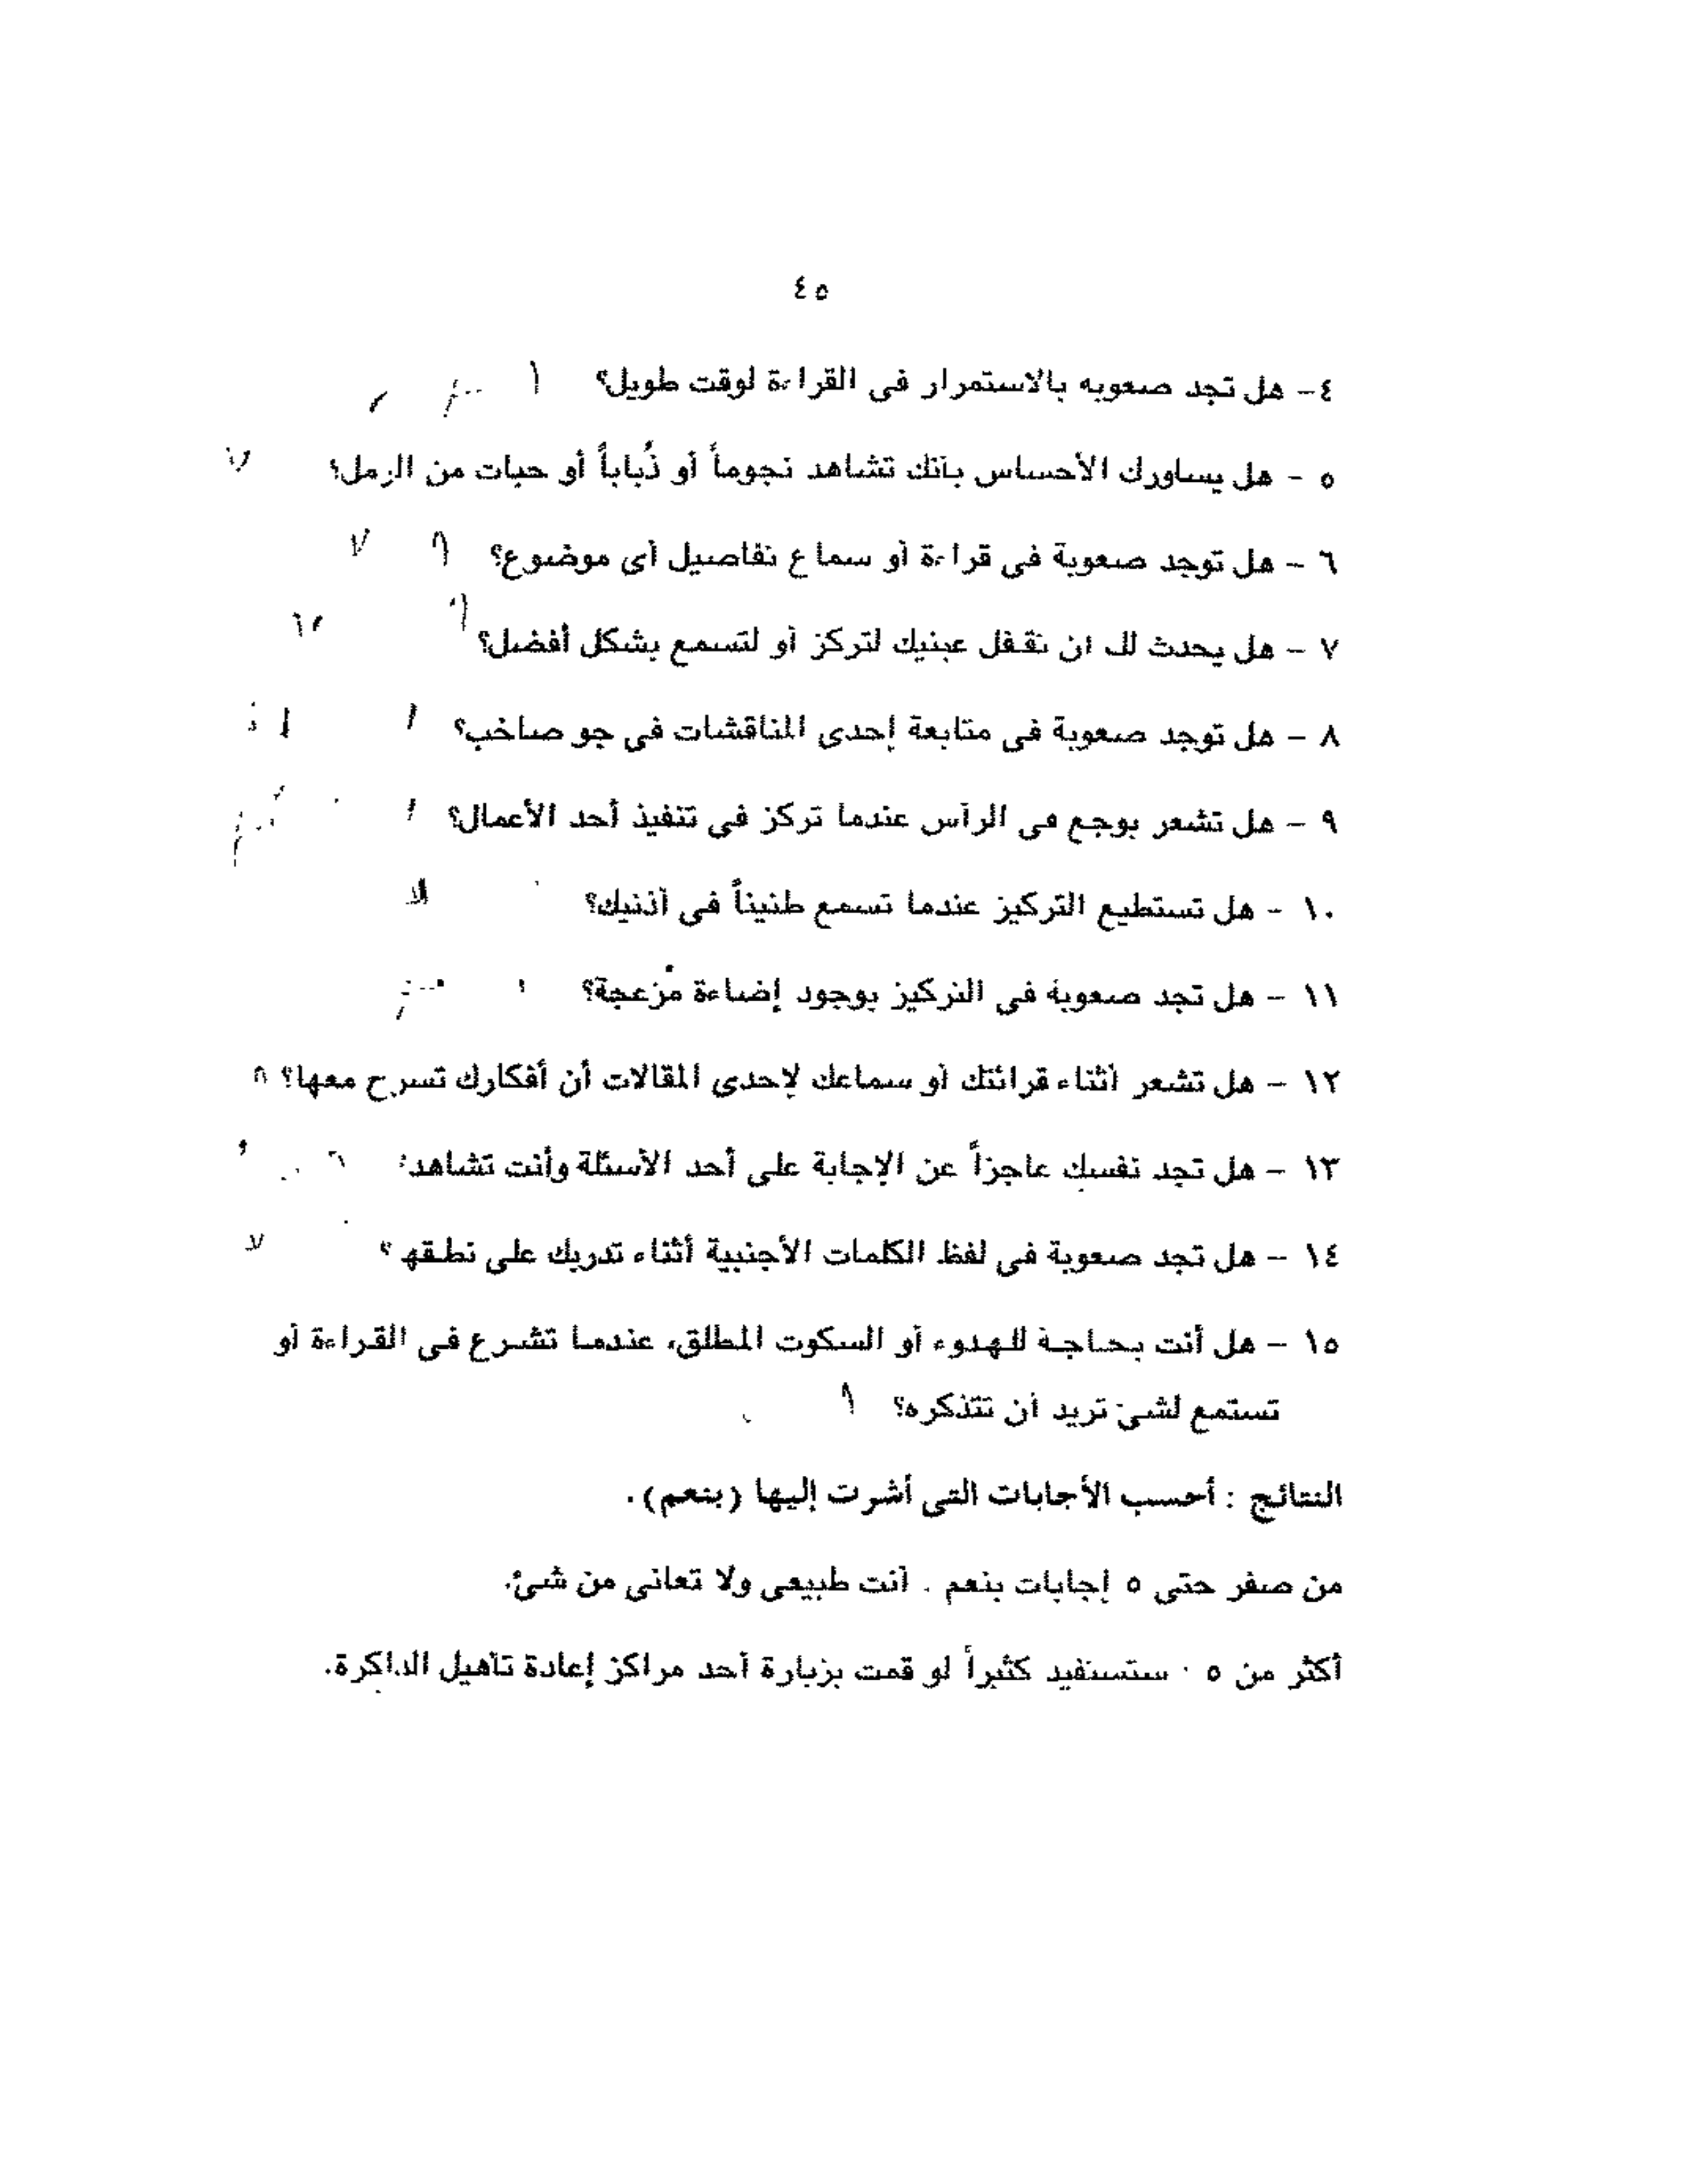 ٤٥
٤- هل تجد صعوبه بالاستمرار فى القراءة لوقت طويل؟
٥ - هل يساورك الأحساس بأنك تشاهد نجوماً أو ذُباباً أو حبات من الرمل؟
٦ - هل توجد صعوبة فى قراءة أو سماع تفاصيل أى موضوع؟
٧ - هل يحدث لك ان تقفل عينيك لتركز أو لتسمع بشكل أفضل؟
٨ - هل توجد صعوبة فى متابعة إحدى المناقشات فى جو صاخب؟
٩ - هل تشعر بوجع فى الرأس عندما تركز فى تنفيذ أحد الأعمال؟
١٠ - هل تستطيع التركيز عندما تسمع طنيناً فى أذنيك؟ لا
١١ - هل تجد صعوبة فى التركيز بوجود إضاءة مزعجة؟
١٢ - هل تشعر أثناء قرائتك أو سماعك لإحدى المقالات أن أفكارك تسرح معها؟
١٣ - هل تجد نفسك عاجزاً عن الإجابة على أحد الأسئلة وأنت تشاهد
١٤ - هل تجد صعوبة فى لفظ الكلمات الأجنبية أثناء تدريك على نطقها؟ لا
١٥ - هل أنت بحاجة للهدوء أو السكوت المطلق، عندما تشرع فى القراءة أو
تستمع لشئ تريد أن تتذكره؟
النتائج : أحسب الأجابات التى أشرت إليها (بنعم).
من صفر حتى ٥ إجابات بنعم . أنت طبيعى ولا تعانى من شئ.
أكثر من ٥ . ستستفيد كثيراً لو قمت بزيارة أحد مراكز إعادة تأهيل الذاكرة.